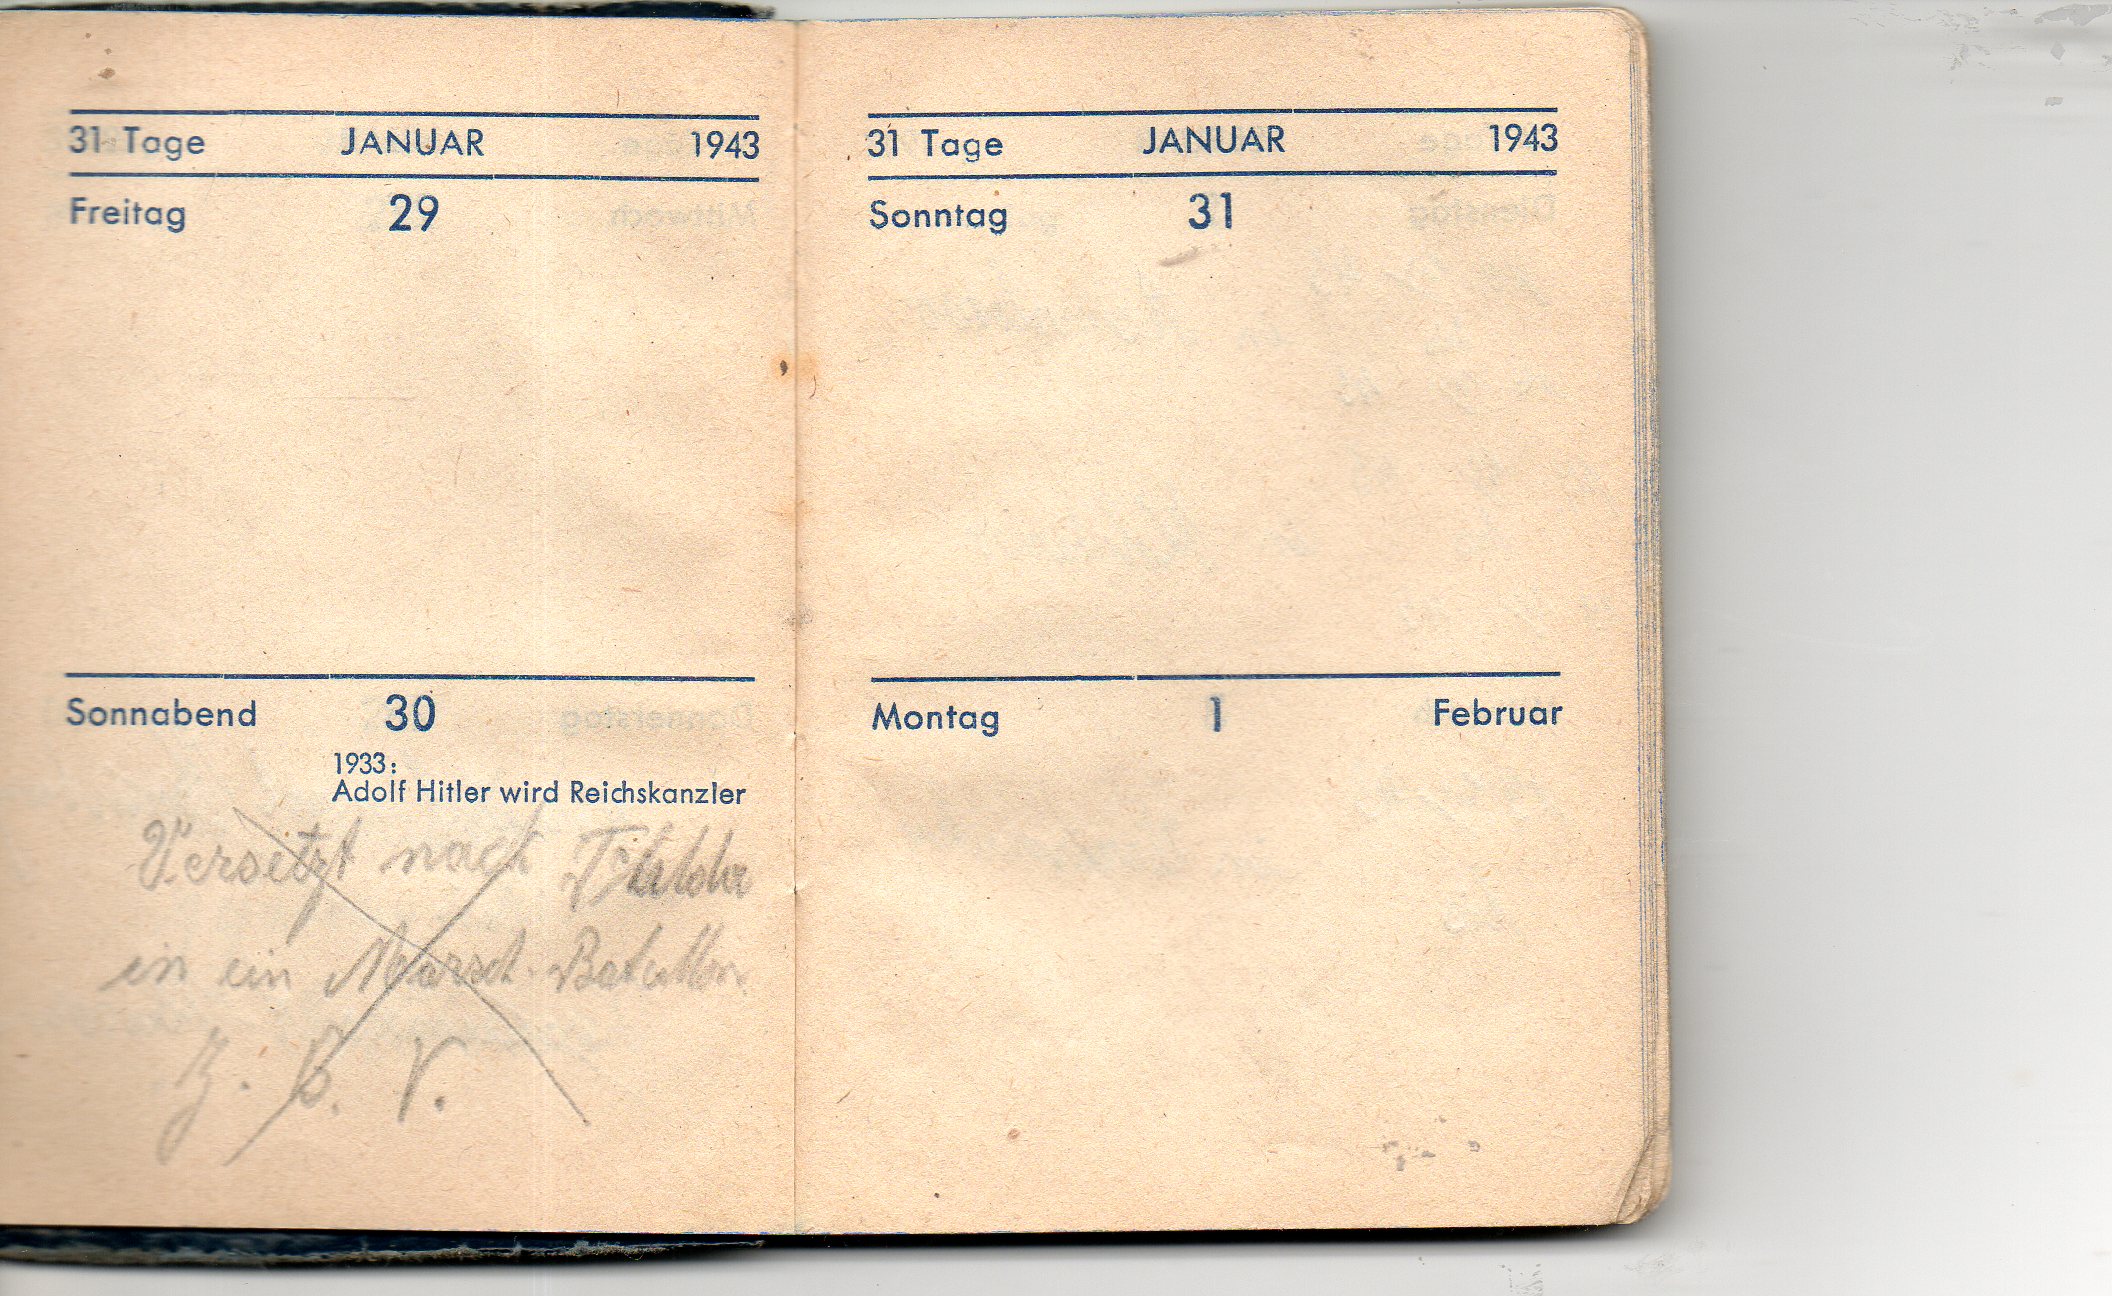 31 Tage JANUAR 1943
Freitag 29
Sonnabend 30
1933:
Adolf Hitler wird Reichskanzler
Versetzt nach Fulda
in ein Marsch-Batallon
z. b. V.
31 Tage JANUAR 1943
Sonntag 31
Montag 1 Februar